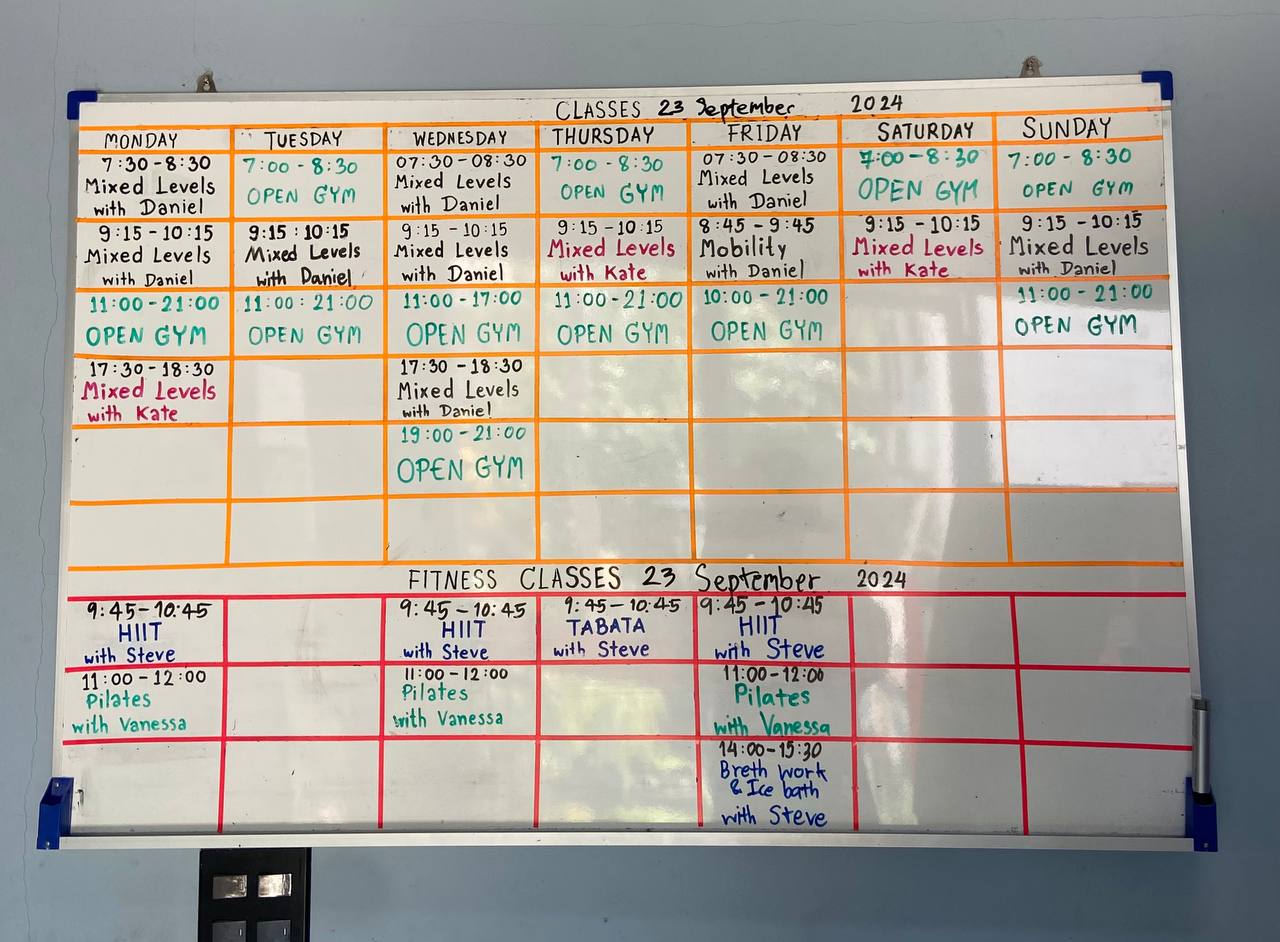 CLASSES 23 September 2024
MONDAY TUESDAY WEDNESDAY THURSDAY FRIDAY SATURDAY SUNDAY
7:30-8:30 7:00 - 8:30 07:30-08:30 7:00 - 8:30 07:30-08:30 7:00-8:30 7:00 - 8:30
Mixed Levels OPEN GYM Mixed Levels OPEN GYM Mixed Levels OPEN GYM OPEN GYM
with Daniel with Daniel with Daniel
9:15-10:15 9:15:10:15 9:15-10:15 9:15-10:15 8:45-9:45 9:15-10:15 9:15-10:15
Mixed Levels Mixed Levels Mixed Levels Mixed Levels Mobility Mixed Levels Mixed Levels
with Daniel with Daniel with Daniel with Kate with Daniel with Kate with Daniel
11:00-21:00 11:00:21:00 11:00-17:00 11:00-21:00 10:00-21:00 11:00-21:00
OPEN GYM OPEN GYM OPEN GYM OPEN GYM OPEN GYM OPEN GYM
17:30-18:30 17:30-18:30
Mixed Levels Mixed Levels
with Kate with Daniel
19:00-21:00
OPEN GYM
FITNESS CLASSES 23 September 2024
9:45-10:45 9:45-10:45 9:45-10:45 9:45-10:45
HIIT HIIT TABATA HIIT
with Steve with Steve with Steve with Steve
11:00-12:00 11:00-12:00 11:00-12:00
Pilates Pilates Pilates
with Vanessa with Vanessa with Vanessa
14:00-15:30
Breth work
& Ice bath
with Steve